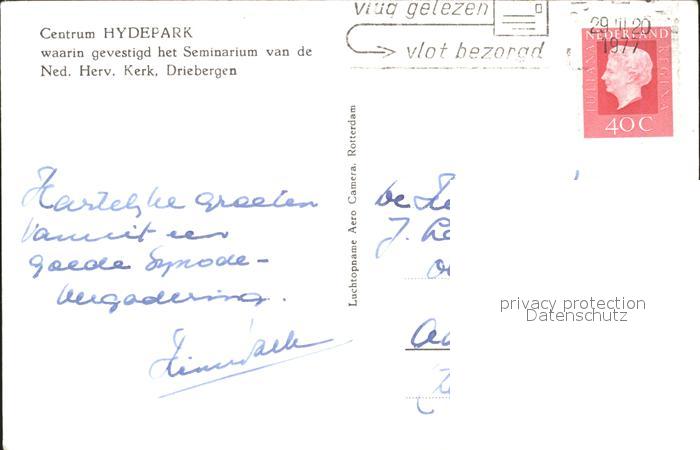 Centrum HYDEPARK
waarin gevestigd het Seminarium van de
Ned. Herv. Kerk, Driebergen
vlug gelezen
vlot bezorgd
29.III.20
1977
NEDERLAND
JULIANA REGINA
40 C
Luchtopname Aero Camera, Rotterdam
Hartelijke groeten
vanuit een
goede Synode-
vergadering.
De
J.
privacy protection
Datenschutz